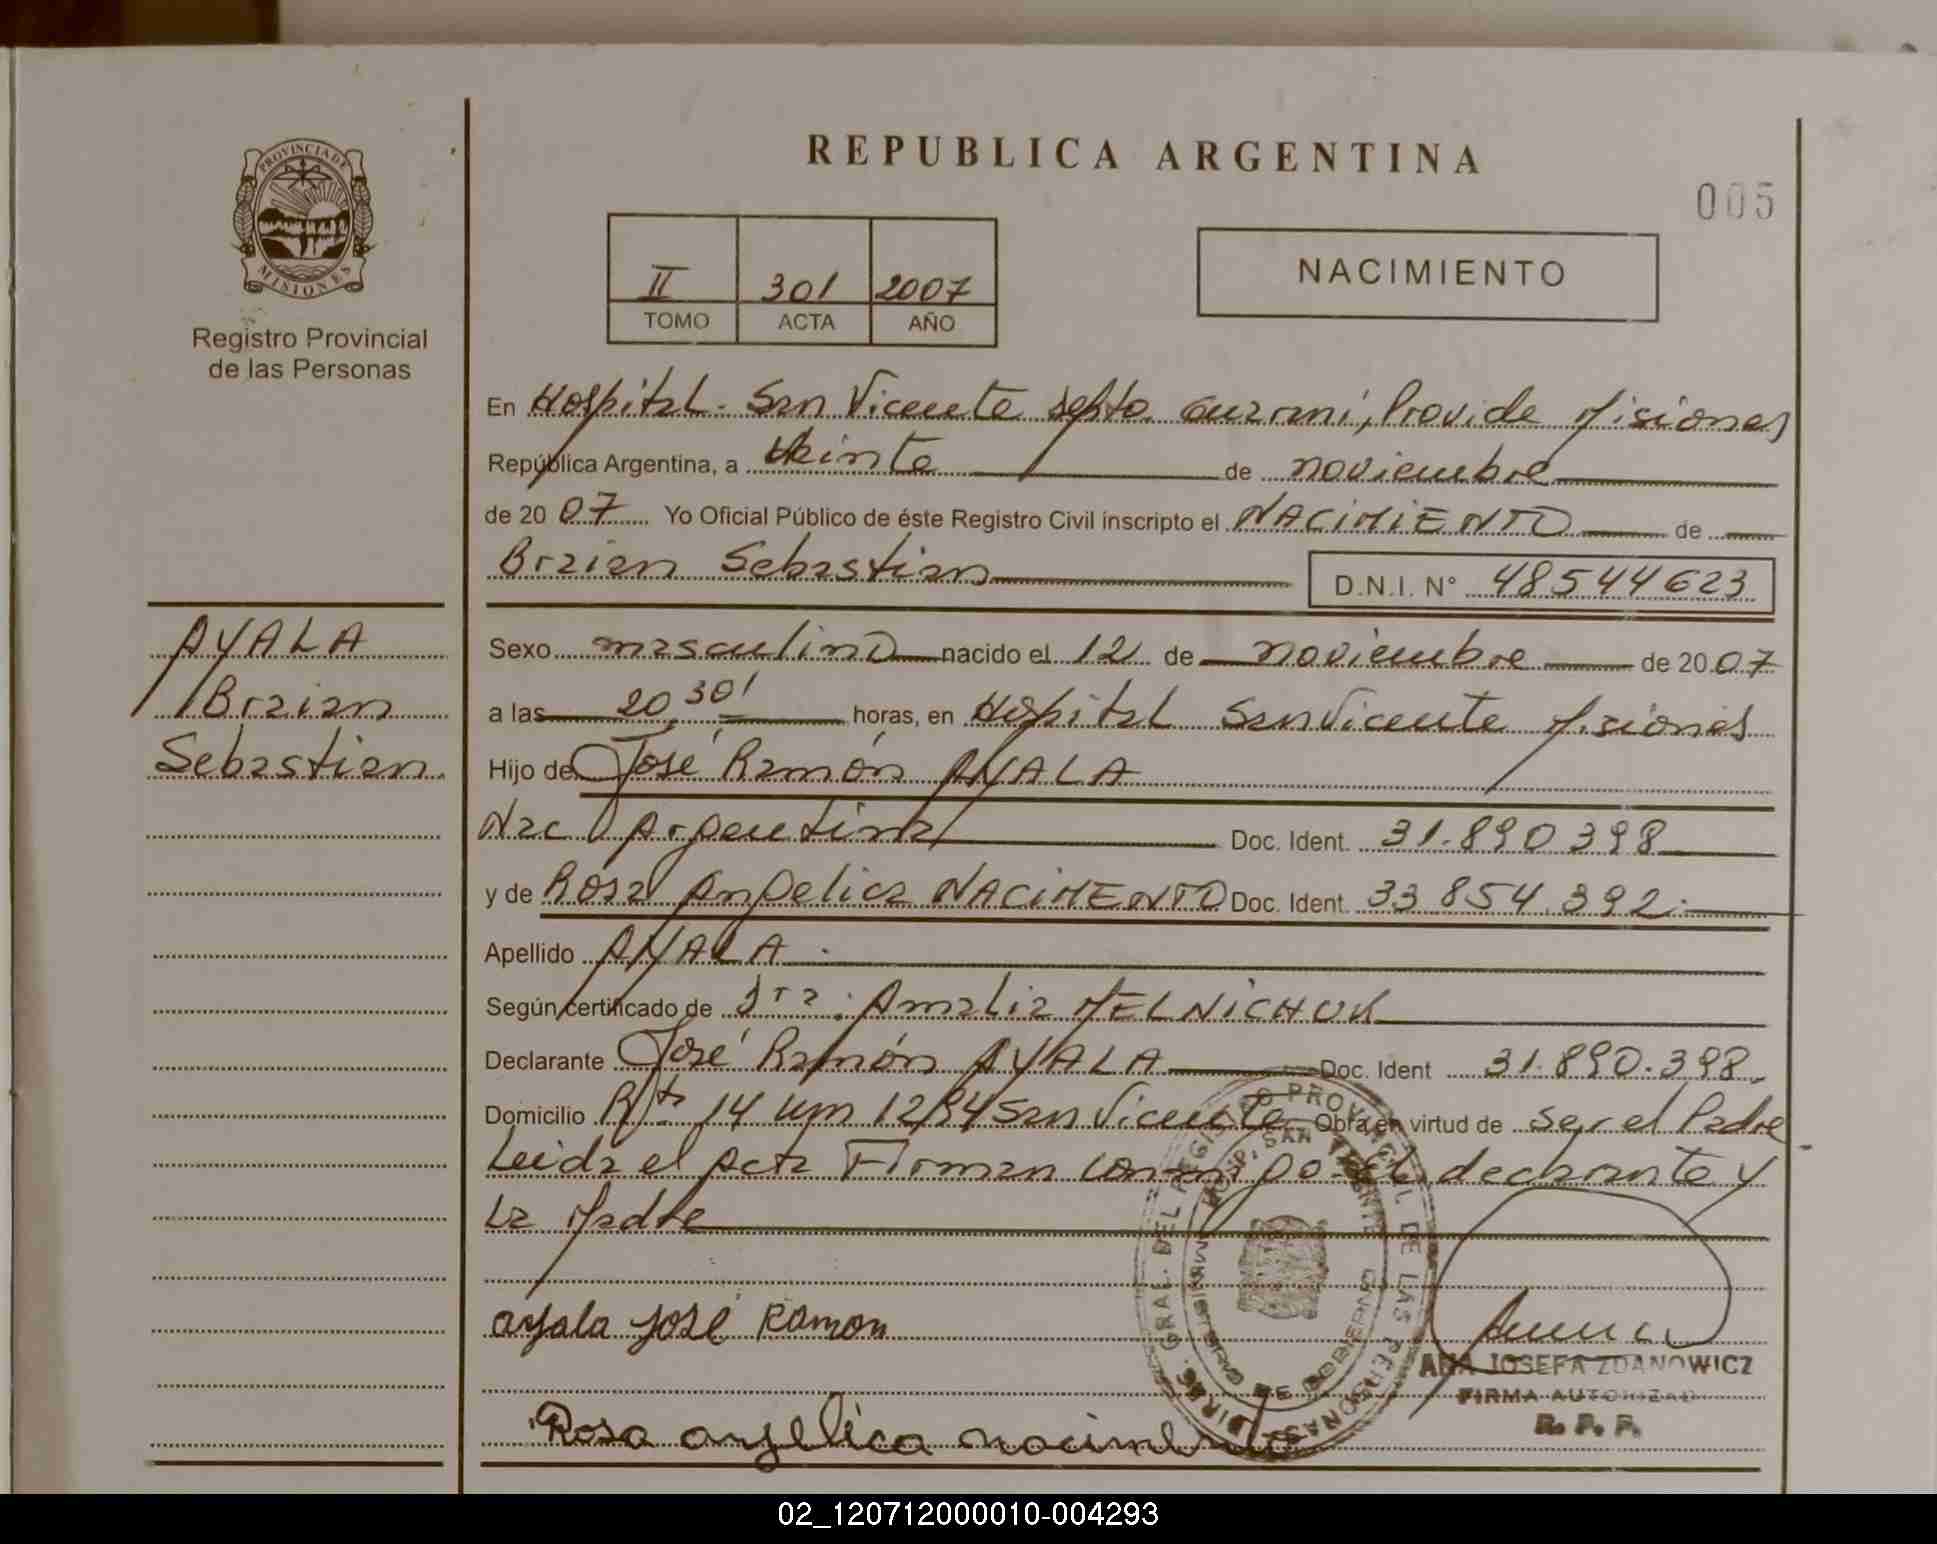 REPUBLICA ARGENTINA
005
PROVINCIA DE
MISIONES
Registro Provincial
de las Personas
II 301 2007
TOMO ACTA AÑO
NACIMIENTO
En Hospital - San Vicente depto Guarani, Prov. de Misiones
República Argentina, a Veinte de noviembre
de 20 07 Yo Oficial Público de éste Registro Civil inscripto el NACIMIENTO de
Braian Sebastian D.N.I. N° 48544623
AYALA
Braian
Sebastian
Sexo masculino nacido el 12 de noviembre de 20 07
a las 20,30' horas, en Hospital San Vicente Misiones
Hijo de José Ramón AYALA
Nac Argentina Doc. Ident. 31.890398
y de Rosa Angelica NACIMENTO Doc. Ident. 33 854.392.-
Apellido AYALA.
Según certificado de Dra: Amalia MELNICHUK
Declarante José Ramón AYALA Doc. Ident 31.890.398.
Domicilio Rta 14 Km 1234 San Vicente Obra en virtud de ser el Padre
Leida el Acta Firman conmigo el declarante y
La Madre
ayala José Ramon
Rosa angelica nacimento
DIREC. GRAL. DEL REGISTRO PROVINCIAL DE LAS PERSONAS
ANA JOSEFA ZDANOWICZ
FIRMA AUTORIZAD
R. P. P.
02_120712000010-004293